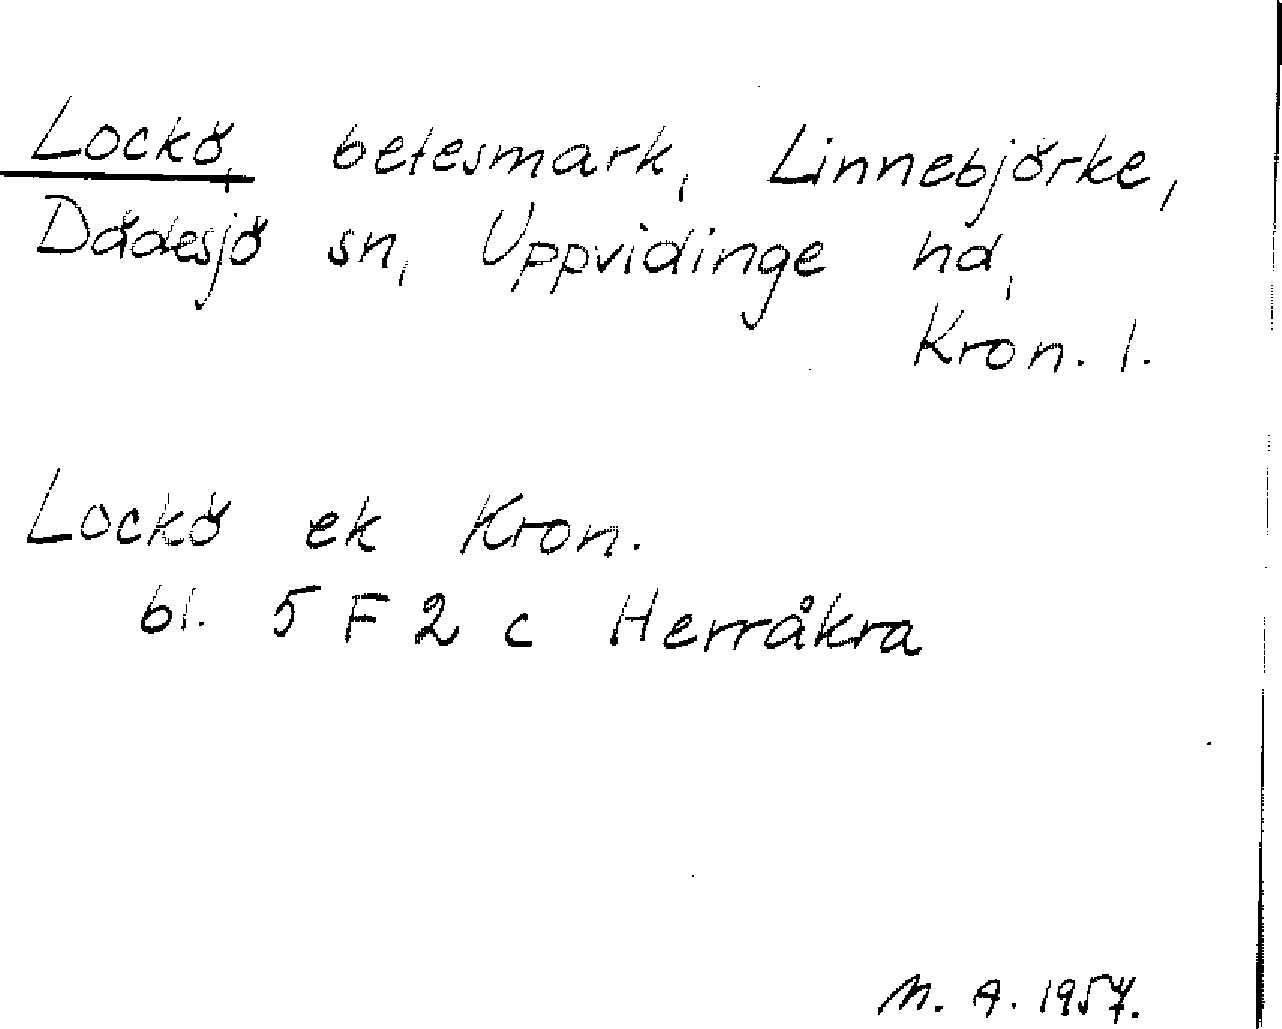 Lockö, betesmark, Linnebjörke,
Dädesjö sn, Uppvidinge hd,
Kron. l.
Lockö ek Kron.
bl. 5 F 2 c Herråkra
M. A. 1957.